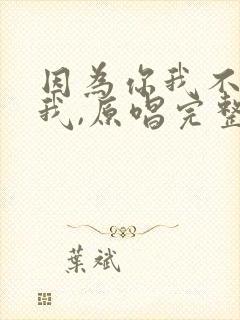 因為你我不
我,原唱完整
葉斌